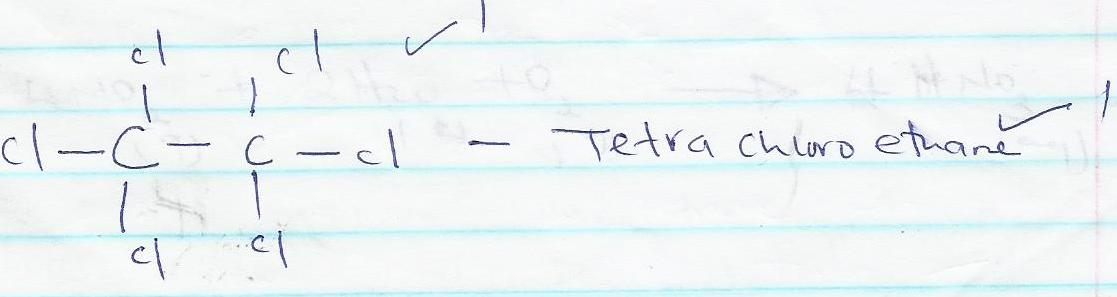 cl cl ✓ 1
cl — C — C — cl — Tetra chloro ethane ✓ 1
cl cl